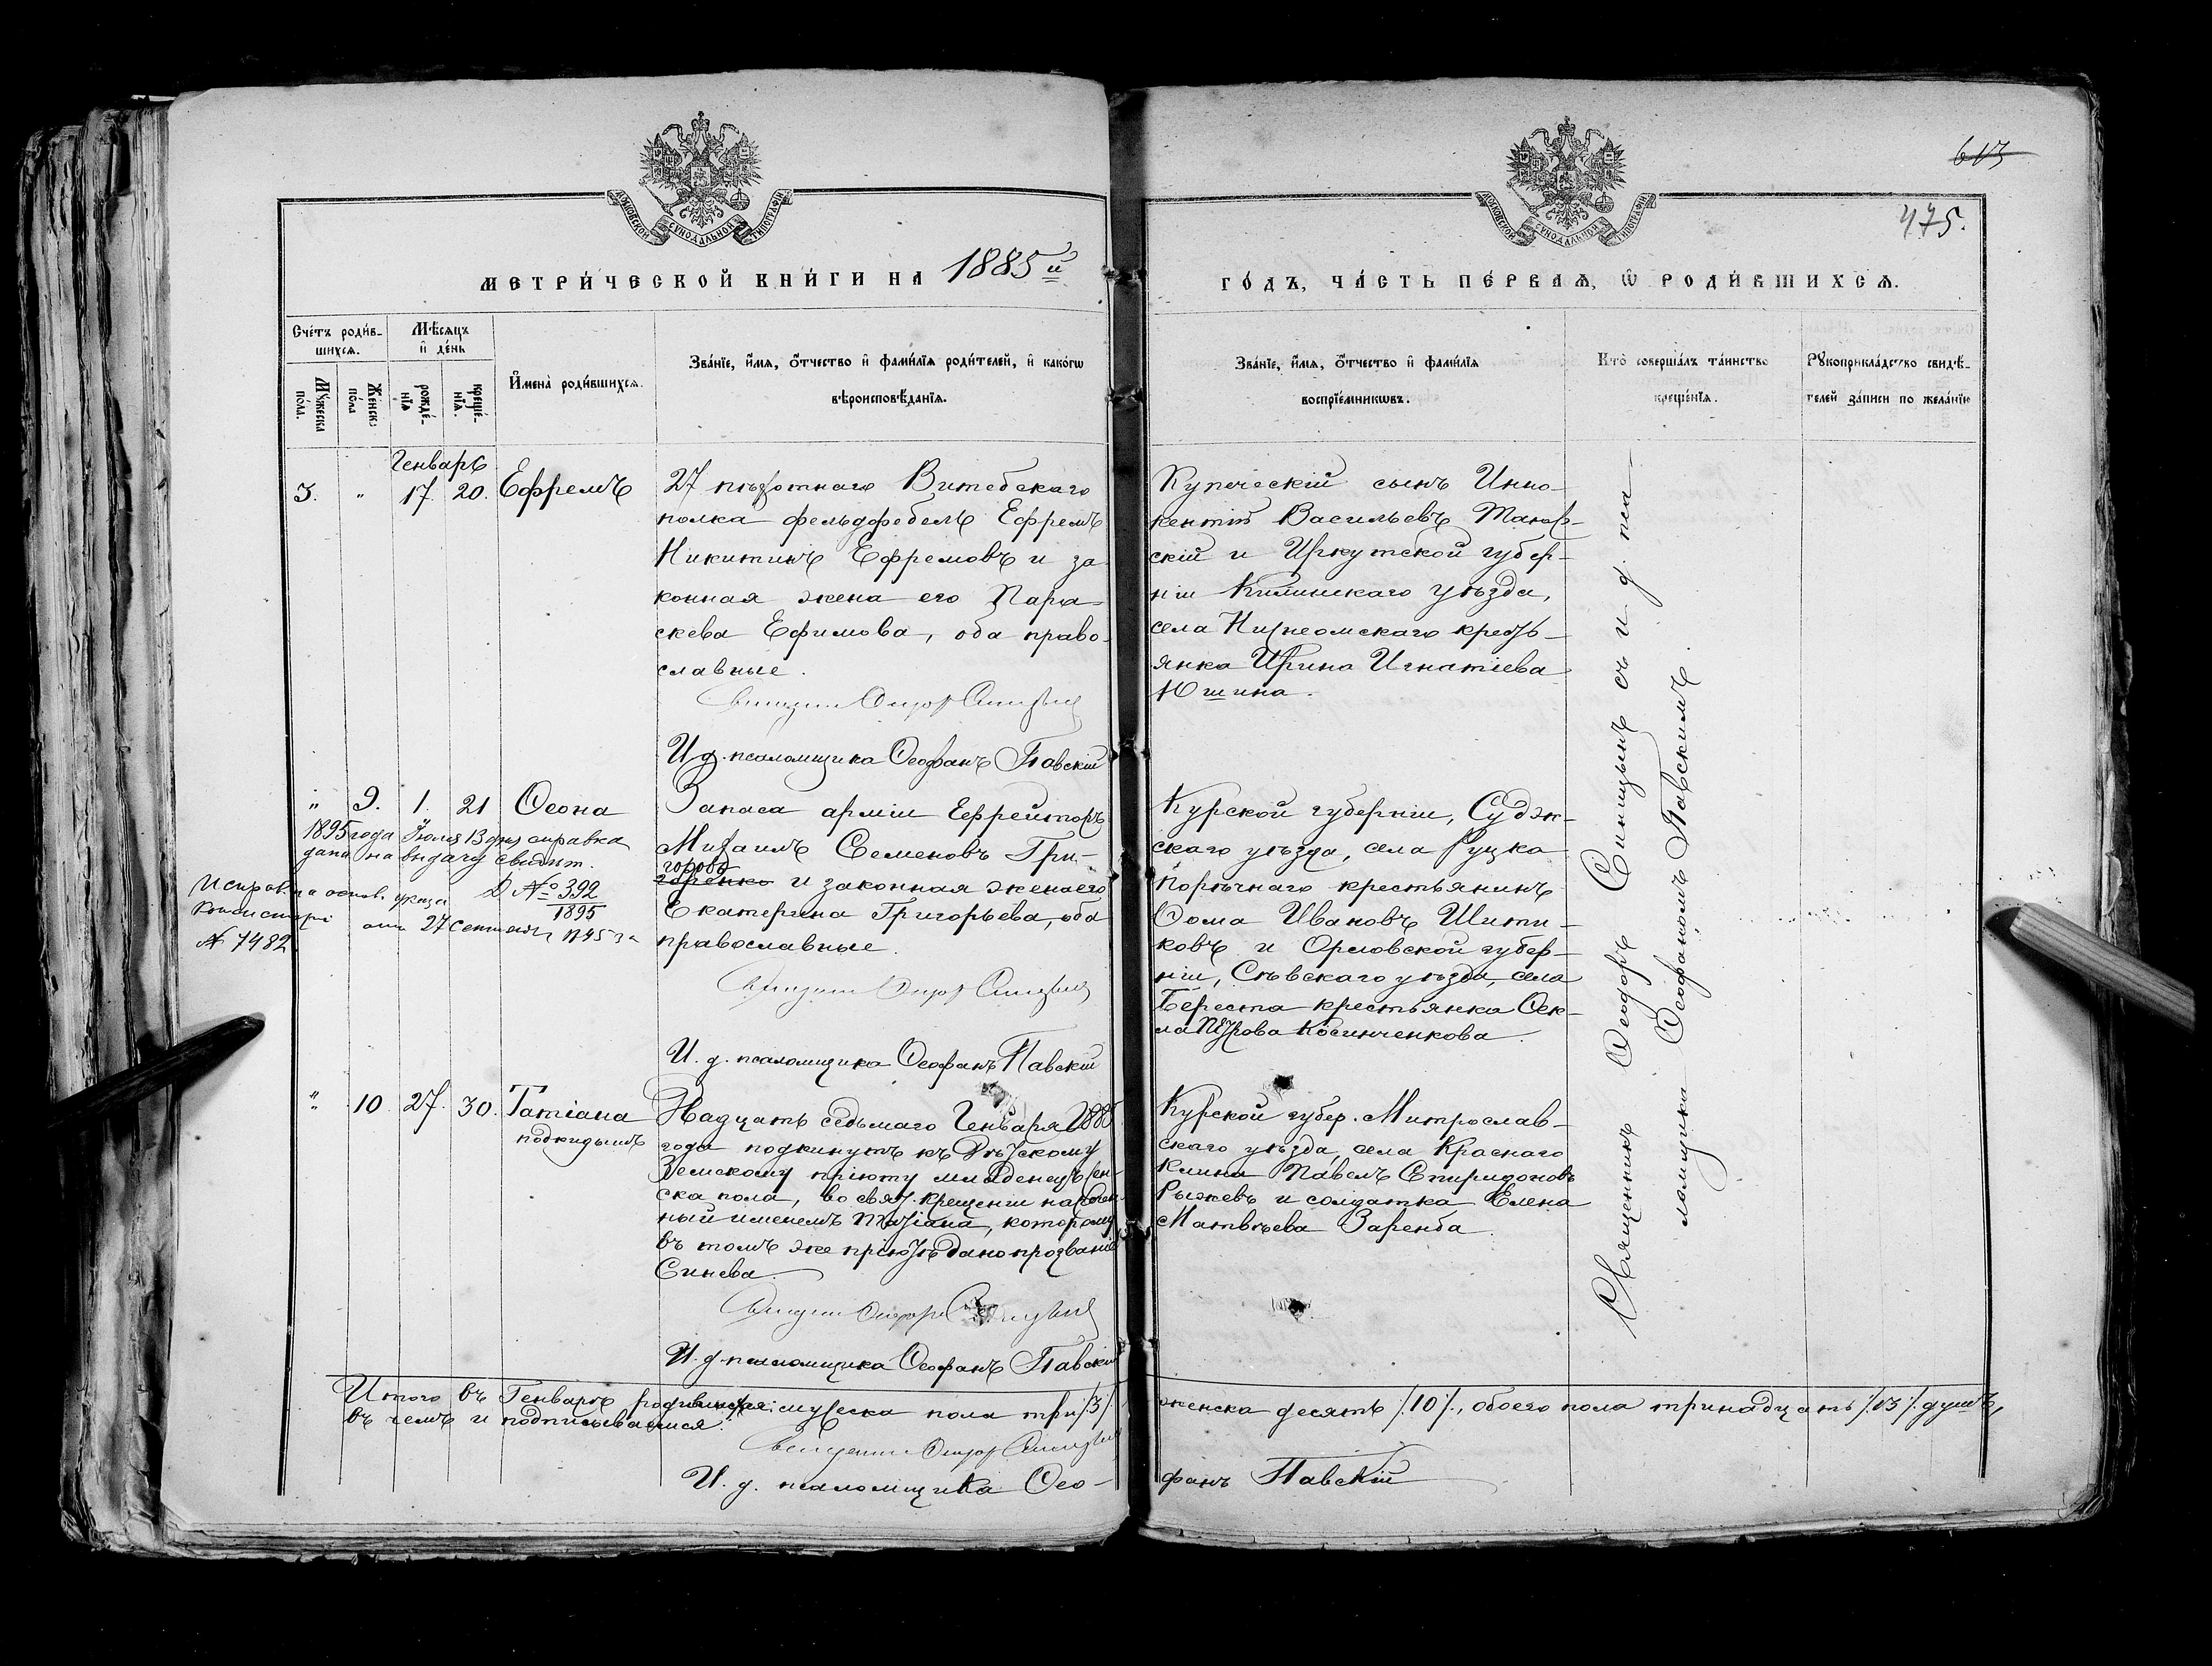 613
475.
МОСКОВСКОЙ СУНОДАЛЬНОЙ ТИПОГРАФІИ
МОСКОВСКОЙ СУНОДАЛЬНОЙ ТИПОГРАФІИ
МЕТРИ́ЧЕСКОЙ КНИ́ГИ НА 1885 й
ГО́ДЪ, ЧА́СТЬ ПЕ́РВАѦ, Ѿ РОДИ́ВШИХСѦ.
Сче́тъ роди́в-
шихсѧ.
Мꙋ́жеска по́ла.
Же́нска по́ла
Мѣ́сѧцъ и҆ де́нь
рожде́-
нїѧ
креще́-
нїѧ.
И҆мена̀ роди́вшихсѧ.
Зва́нїе, и҆́мѧ, ѻ҆́тчество и҆ фами́лїѧ роди́телей, и҆ како́гѡ
вѣроисповѣ́данїѧ.
Зва́нїе, и҆́мѧ, ѻ҆́тчество и҆ фами́лїѧ
воспрїе́мникѡвъ.
Кто̀ соверша́лъ та́инство
креще́нїѧ.
Рꙋкоприкла́дство свидѣ́-
телей за́писи по жела́нїю
Генварь
3. „ 17. 20. Ефремъ
27 пѣхотнаго Витебскаго
полка фельдфебель Ефремъ
Никитинъ Ефремовъ и за
конная жена его Пара-
скева Ефимова, оба право-
славные.
Священникъ Ѳеодоръ Синицынъ
И. д. псаломщика Ѳеофанъ Павскій
Купеческій сынъ Инно-
кентій Васильевъ
скій и Иркутской губер-
ніи уѣзда,
села кресть-
янка Ирина Игнатіева
Юшина.
„ 9. 1. 21 Ѳеона
1895 года Іюля 13 дня справка
дана на выдачу свидѣт.
Д № 392
1895
Исправ. на основ. указа
Консисторіи от 27 Сентября
№ 7482
Запаса арміи Ефрейторъ
Михаилъ Семеновъ Гри-
горовъ
горенко и законная жена его
Екатерина Григорьева, оба
православные.
Священникъ Ѳеодоръ Синицынъ
И. д. псаломщика Ѳеофанъ Павскій
Курской губерніи, Судж-
скаго уѣзда, села Руцка
Порѣчнаго крестьянинъ
Ѳома Ивановъ Шити-
ковъ и Орловской губер-
ніи, Сѣвскаго уѣзда, села
Береста крестьянка Ѳек-
ла Петрова Косинченкова.
„ 10 27. 30. Татіана
подкидышъ
Надцать седьмаго Генваря 1885
года подкинутъ къ скому
Земскому пріюту младенецъ жен-
ска пола, во свят. крещеніи наречен-
ный именемъ Татіана, которому
въ томъ же пріютѣ дано прозваніе
Синева.
Священникъ Ѳеодоръ Синицынъ
И. д. псаломщика Ѳеофанъ Павскій
Курской губер. Митрослав-
скаго уѣзда, села Краснаго
Клина Павелъ Спиридоновъ
Рыжевъ и солдатка Елена
Матвѣева Заренба.
Священникъ Ѳеодоръ Синицынъ съ и. д. пса-
ломщика Ѳеофаномъ Павскимъ.
Итого въ Генварѣ родившихся: мужеска пола три /3/. женска десять /.10/., обоего пола тринадцать /.13/. душъ,
въ чемъ и подписываемся:
Священникъ Ѳеодоръ Синицынъ
И. д. псаломщика Ѳео- фанъ Павскій